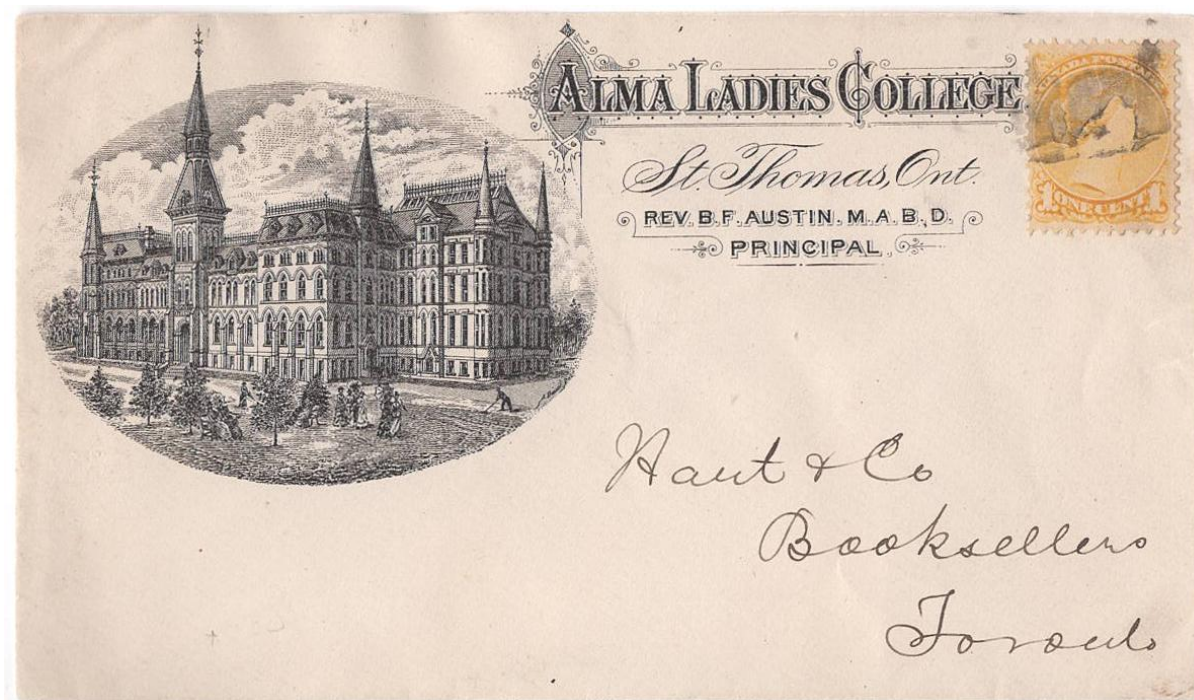 ALMA LADIES COLLEGE
St. Thomas, Ont.
REV. B. F. AUSTIN. M. A. B. D.
PRINCIPAL.
CANADA POSTAGE
1 ONE CENT 1
& Co
Booksellers
Toronto